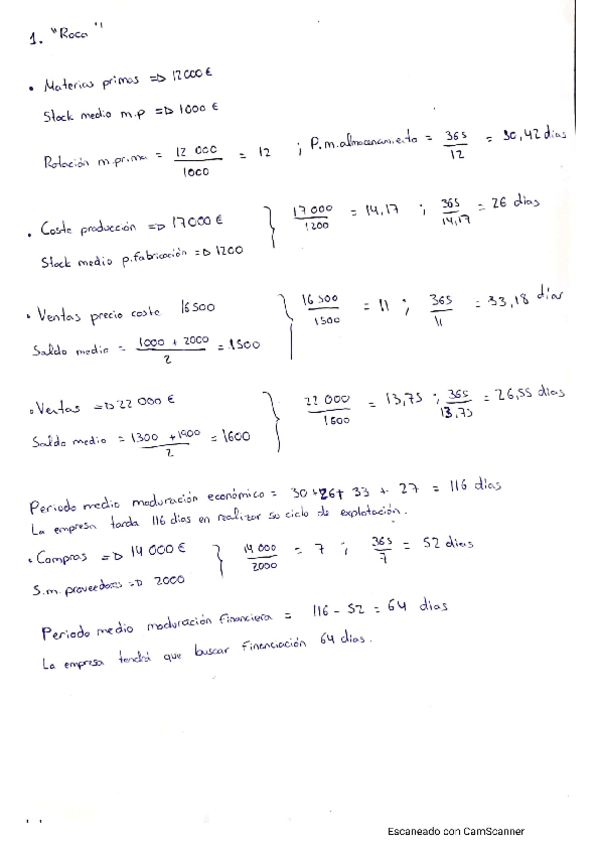 1. "Roca"
• Materias primas => 12000 €
Stock medio m.p => 1000 €
Rotación m.prima = 12 000 / 1000 = 12 ; P.m.almacenamiento = 365 / 12 = 30,42 días
• Coste producción => 17000 € } 17 000 / 1200 = 14,17 ; 365 / 14,17 = 26 días
Stock medio p.fabricación => 1200
• Ventas precio coste 16500 } 16 500 / 1500 = 11 ; 365 / 11 = 33,18 días
Saldo medio = 1000 + 2000 / 2 = 1500
• Ventas => 22 000 € } 22 000 / 1600 = 13,75 ; 365 / 13,75 = 26,55 días
Saldo medio = 1300 + 1900 / 2 = 1600
Periodo medio maduración económico = 30 + 26 + 33 + 27 = 116 días
La empresa tarda 116 días en realizar su ciclo de explotación.
• Compras => 14 000 € } 14 000 / 2000 = 7 ; 365 / 7 = 52 días
S.m. proveedores => 2000
Periodo medio maduración financiera = 116 - 52 = 64 días
La empresa tendrá que buscar financiación 64 días.
Escaneado con CamScanner